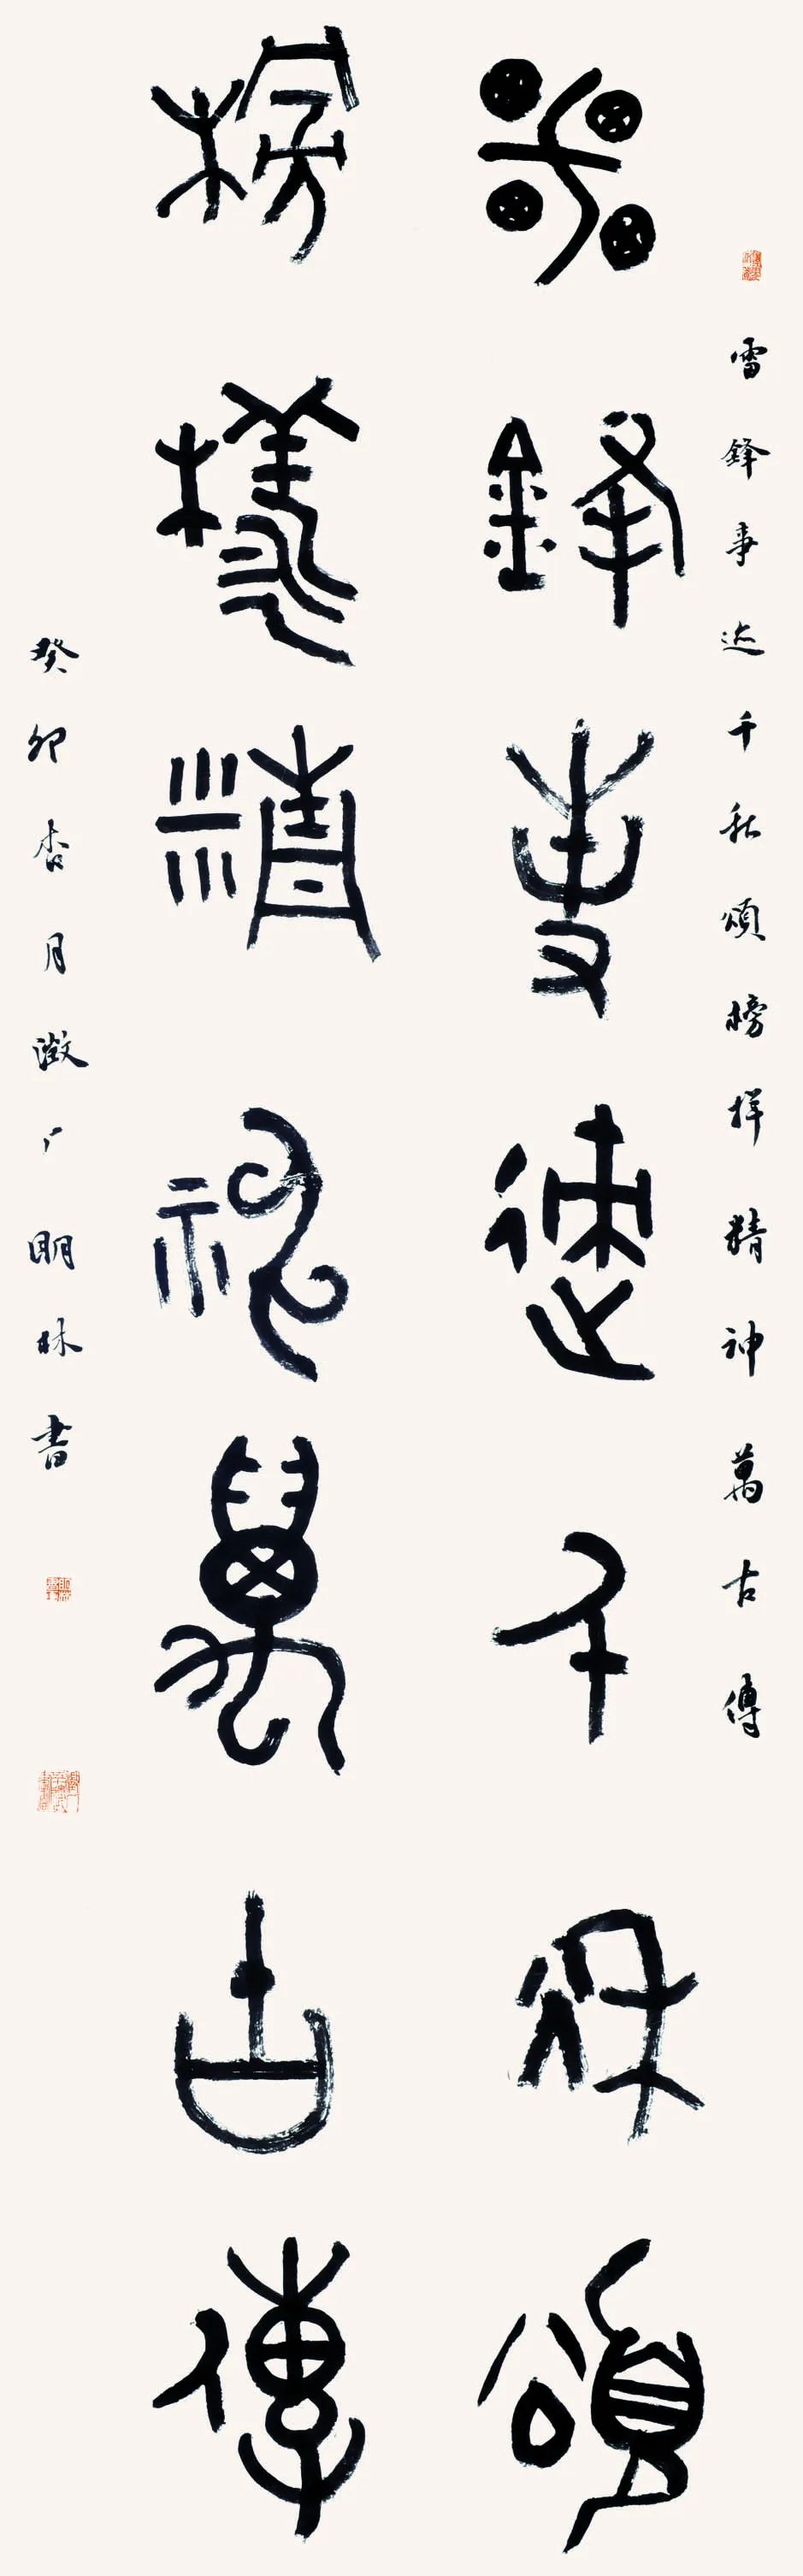 雷鋒事迹千秋頌榜样精神萬古傳
雷鋒事迹千秋頌
榜樣精神萬古傳
癸卯杏月澂广明林書